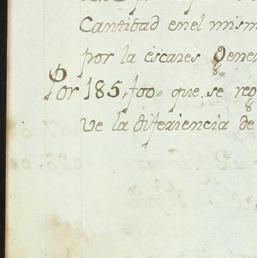 Cantidad en el mism
por la escares Gener
Por 185,700 que se reg
Ve la diferiencia de